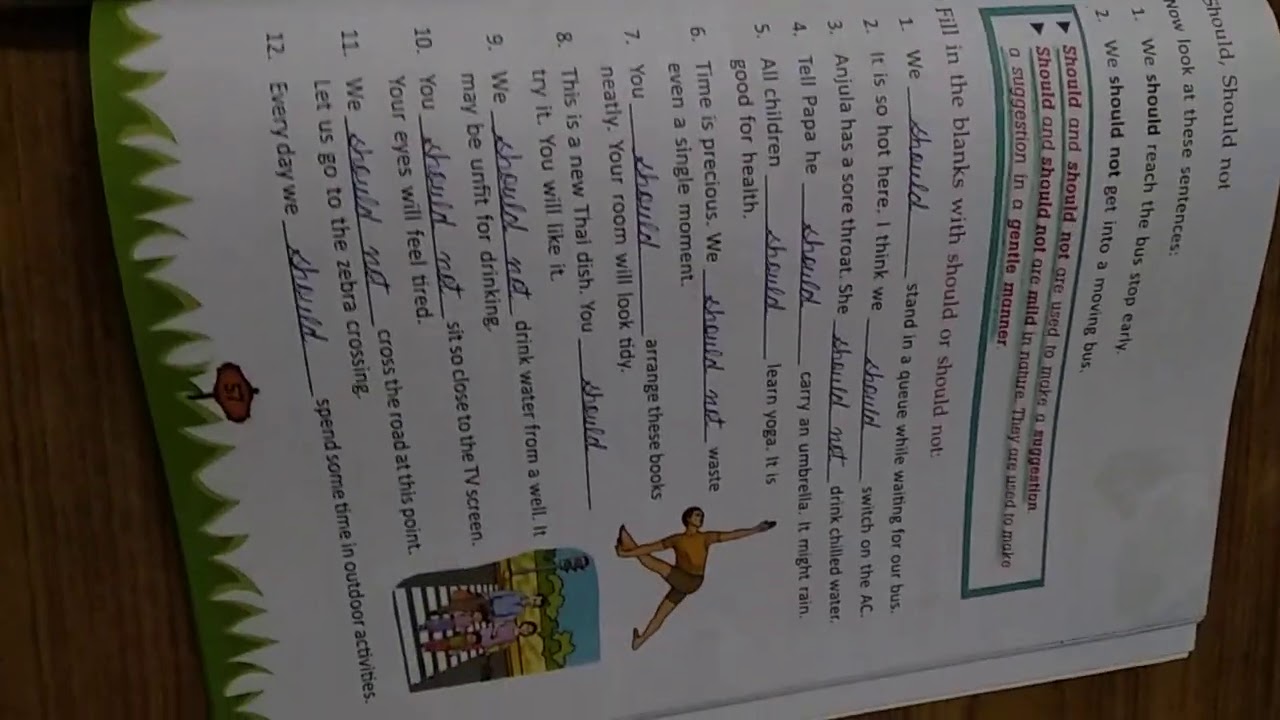 Should, Should not
Now look at these sentences:
1. We should reach the bus stop early.
2. We should not get into a moving bus.
▶ Should and should not are used to make a suggestion.
▶ Should and should not are mild in nature. They are used to make
a suggestion in a gentle manner.
Fill in the blanks with should or should not:
1. We should stand in a queue while waiting for our bus.
2. It is so hot here. I think we should switch on the AC.
3. Anjula has a sore throat. She should not drink chilled water.
4. Tell Papa he should carry an umbrella. It might rain.
5. All children should learn yoga. It is
good for health.
6. Time is precious. We should not waste
even a single moment.
7. You should arrange these books
neatly. Your room will look tidy.
8. This is a new Thai dish. You should
try it. You will like it.
9. We should not drink water from a well. It
may be unfit for drinking.
10. You should not sit so close to the TV screen.
Your eyes will feel tired.
11. We should not cross the road at this point.
Let us go to the zebra crossing.
12. Every day we should spend some time in outdoor activities.
57